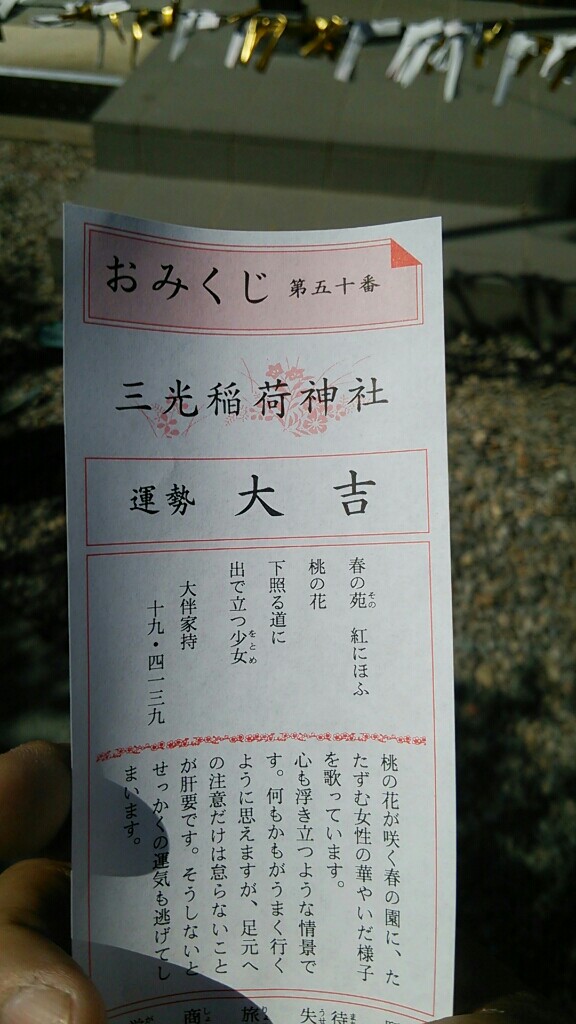 おみくじ 第五十番
三光稲荷神社
運勢 大吉
春の苑 紅にほふ
その
桃の花
下照る道に
出で立つ少女
をとめ
大伴家持
十九・四一三九
桃の花が咲く春の園に、た
たずむ女性の華やいだ様子
を歌っています。
心も浮き立つような情景で
す。何もかもがうまく行く
ように思えますが、足元へ
の注意だけは怠らないこと
が肝要です。そうしないと
せっかくの運気も逃げてし
まいます。
待
失
旅
商